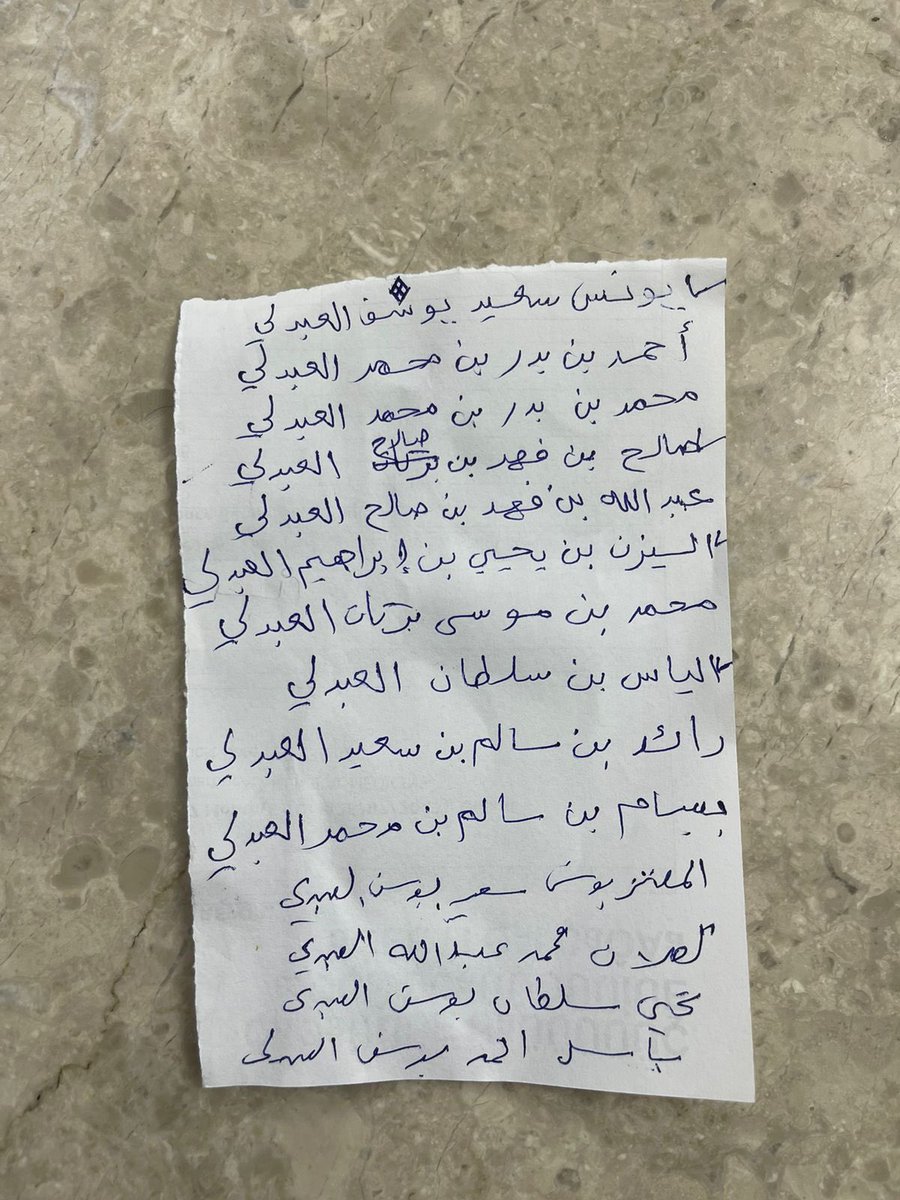 يونس سعيد يوسف العبدلي
أحمد بن بدر بن محمد العبدلي
محمد بن بدر بن محمد العبدلي
صالح بن فهد بن صالح العبدلي
عبد الله بن فهد بن صالح العبدلي
اليزن بن يحيي بن إبراهيم العبدلي
محمد بن موسى بركات العبدلي
الياس بن سلطان العبدلي
رائد بن سالم بن سعيد العبدلي
بسام بن سالم بن محمد العبدلي
المعتز يونس سعيد يوسف العبدلي
محمد عبدالله العبدلي
يحيي سلطان يوسف العبدلي
باسل احمد يوسف العبدلي